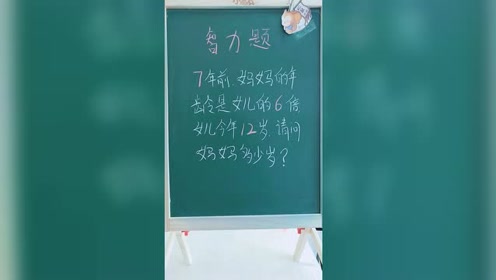 智力题
7年前、妈妈的年
龄是女儿的6倍
女儿今年12岁.请问
妈妈多少岁?